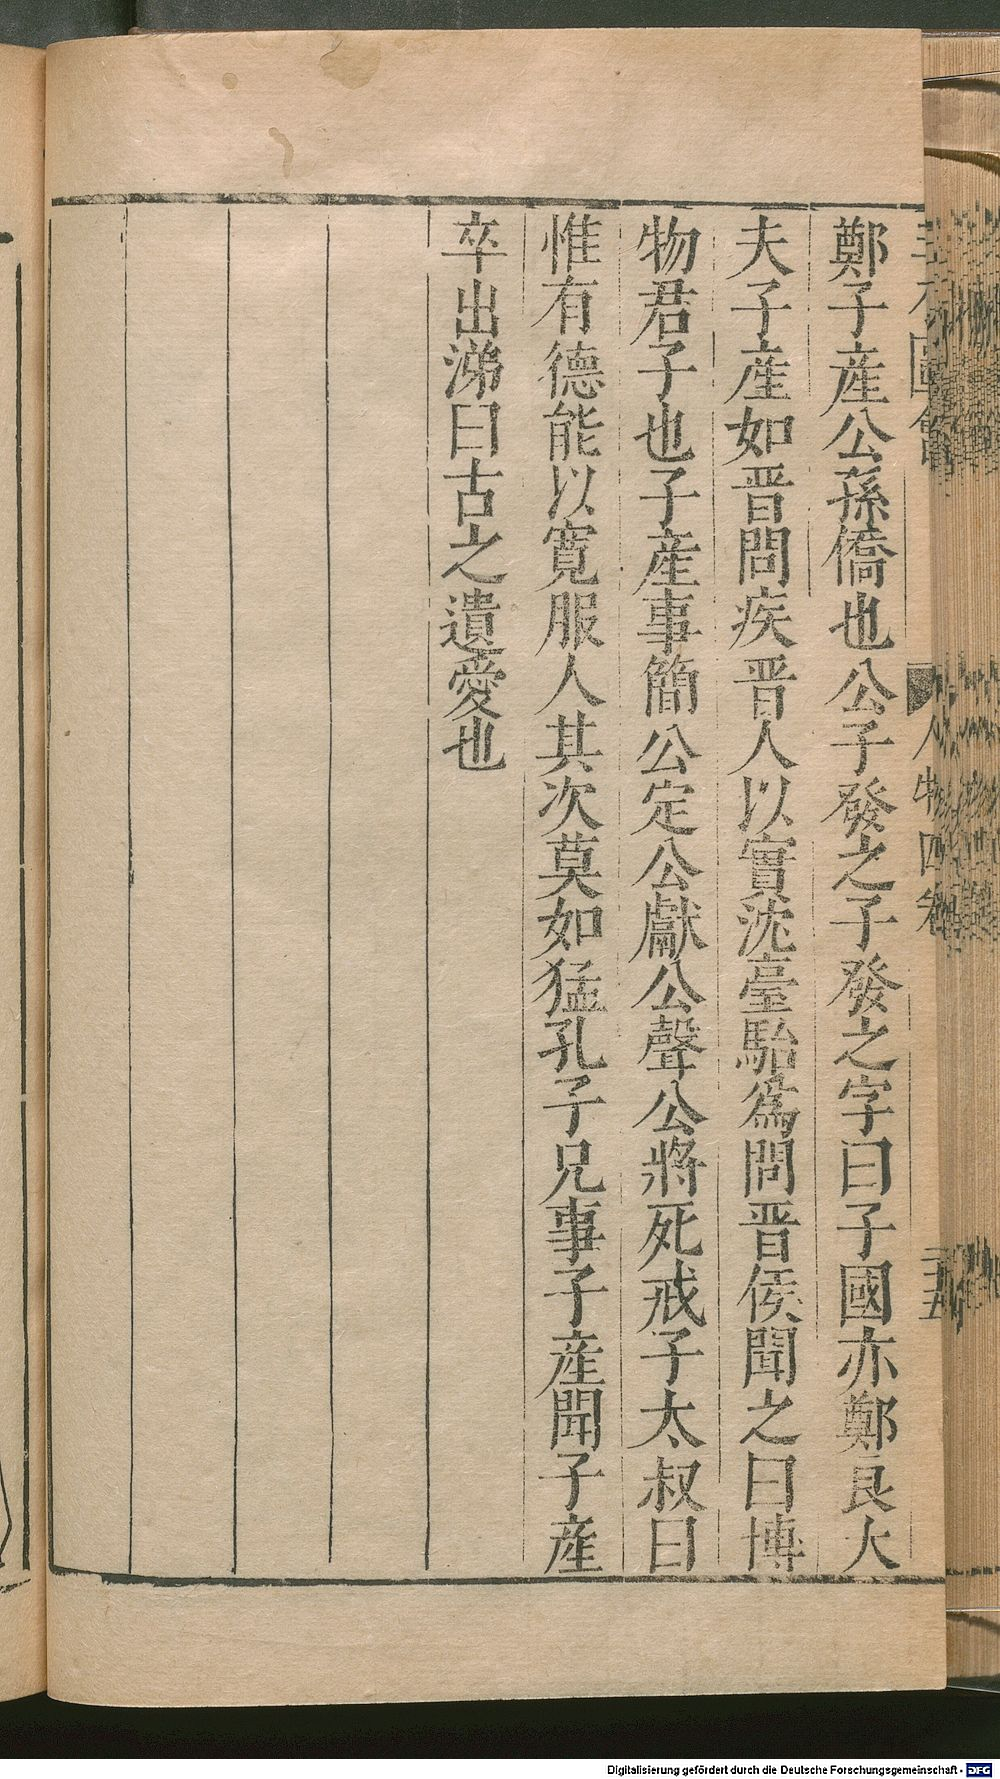 鄭子産公孫僑也公子發之子發之字曰子國亦鄭良大
夫子産如晋問疾晋人以實沈臺駘為問晋侯聞之曰博
物君子也子産事簡公定公獻公聲公將死戒子太叔曰
惟有德能以寛服人其次莫如猛孔子兄事子産聞子産
卒出涕曰古之遺愛也
人物四卷
Digitalisierung gefördert durch die Deutsche Forschungsgemeinschaft - DFG